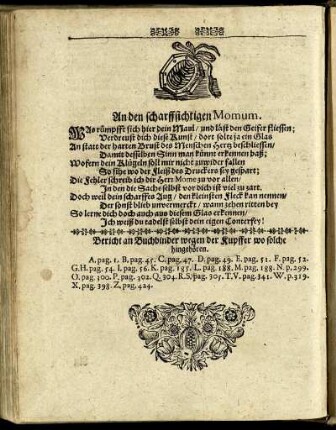 An den scharffsichtigen Momum.
WAs rümpfft sich hier dein Maul / und läst den Geifer fliessen;
Verdreust dich diese Kunst / dort solte ja ein Glas
An statt der harten Brust des Menschen Hertz beschliessen /
Damit desselben Sinn man könne erkennen baß;
Wofern dein Klügeln soll mir nicht zuwider fallen
So sihe wo der Fleiß des Druckers sey gespart;
Die Fehler schreib ich dir Herr Mome zu vor allen /
In den die Sache selbst vor dich ist viel zu zart.
Doch weil dein scharffes Aug / den kleinsten Fleck kan nennen /
Der sonst blieb unvermerckt / wann zehen ritten bey
So lerne dich doch auch aus diesem Glas erkennen /
Ich weiß du tadelst selbst dein eigen Conterfey!
Bericht an Buchbinder wegen der Kupffer wo solche
hingehören.
A, pag. 1. B, pag. 45. C, pag. 47. D, pag. 49. E, pag. 51. F, pag. 52.
G.H. pag. 54. I. pag. 56. K. pag. 135. L. pag. 188. M. pag. 188. N. p. 299.
O. pag. 300. P. pag. 302. Q. 304. R.S. pag. 305. T.V. pag. 341. W. p. 319.
X, pag. 398. Z, pag. 424.